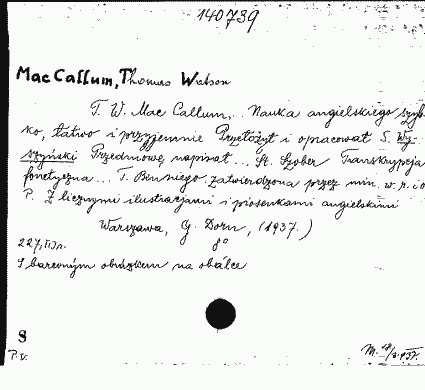 140739
Mac Callum, Thomas Watson
T. W. Mac Callum,... Nauka angielskiego szyb-
ko, łatwo i przyjemnie Przełożył i opracował S. Wy-
szyński Przedmowę napisał ... St. Szober Transkrypcja
fonetyczna ... T. Benniego. Zatwierdzona przez min. w. r. i o
P. Z licznymi ilustracjami i piosenkami angielskimi
Warszawa, G. Dorn, (1937.)
227, 8°
S barevným obrázkem na obálce
S
P. V.
M. 18/